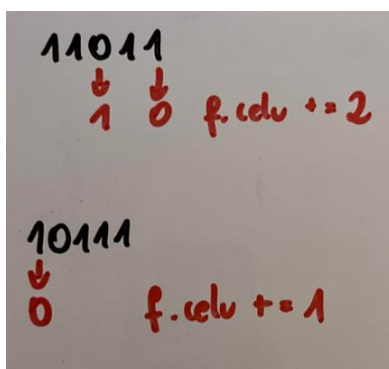 11011
↓ ↓
1 0 f.celv += 2
10111
↓
0 f.celv += 1